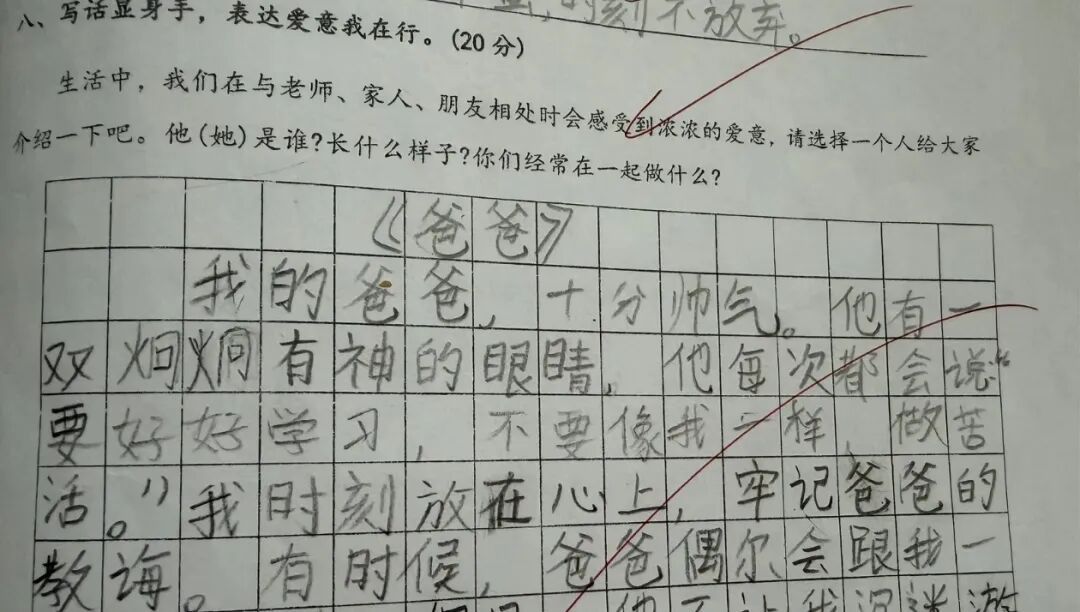 的刻不放弃。
八、写话显身手，表达爱意我在行。(20分)
生活中，我们在与老师、家人、朋友相处时会感受到浓浓的爱意，请选择一个人给大家
介绍一下吧。他(她)是谁?长什么样子?你们经常在一起做什么?
《爸爸》
我的爸爸，十分帅气。他有一
双炯炯有神的眼睛，他每次都会说:“
要好好学习，不要像我一样，做苦
活。”我时刻放在心上，牢记爸爸的
教诲。有时候，爸爸偶尔会跟我一
他不让我沉迷游